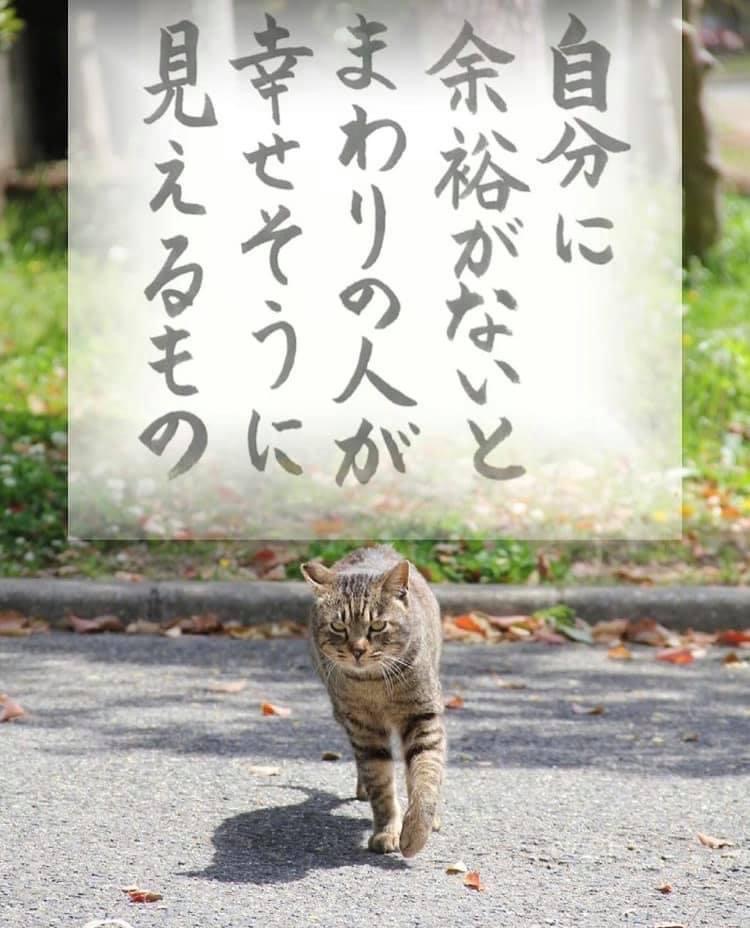 自分に
余裕がないと
まわりの人が
幸せそうに
見えるもの